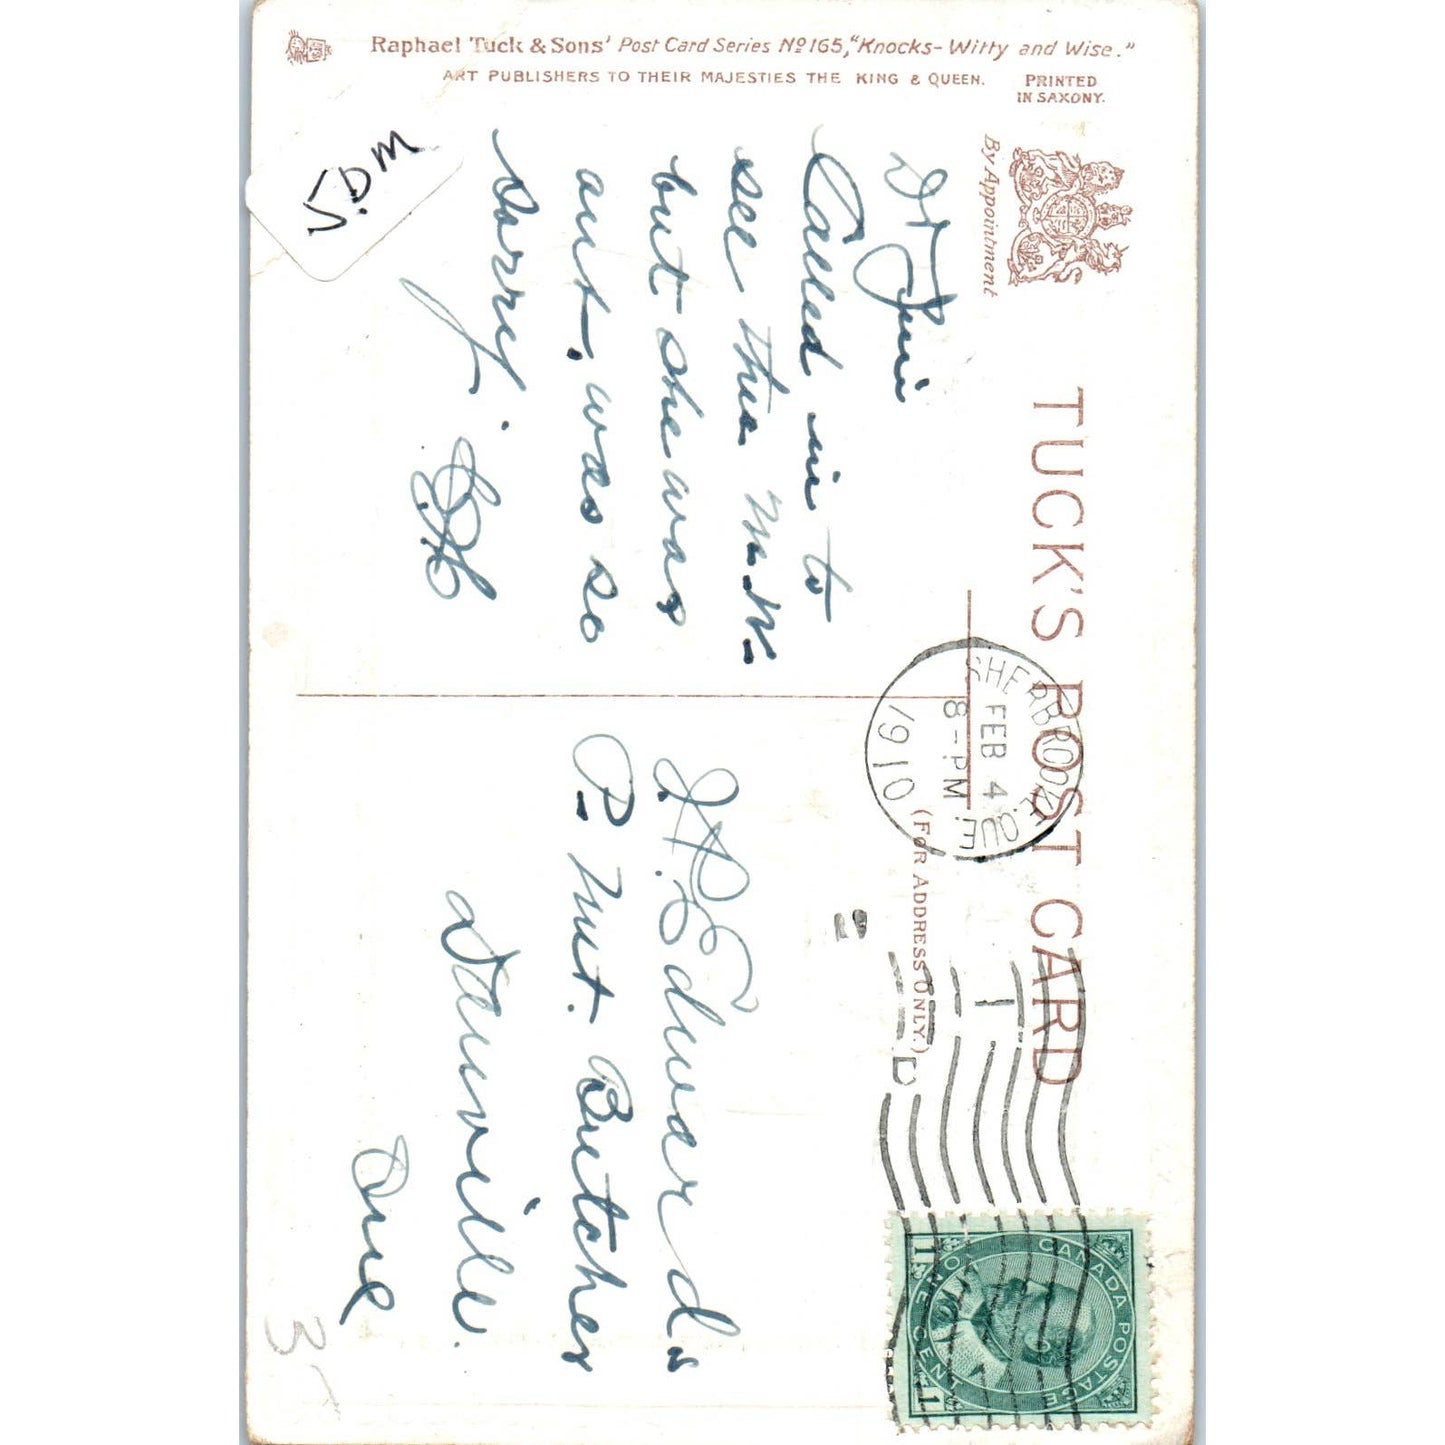 Raphael Tuck & Sons' Post Card Series No 165, "Knocks-Witty and Wise."
ART PUBLISHERS TO THEIR MAJESTIES THE KING & QUEEN.
PRINTED
IN SAXONY.
V.D.M
By Appointment
TUCK'S POST CARD
(FOR ADDRESS ONLY.)
Called in to
see the M.N.
but she was
out, was so
sorry.
SHERBROOKE. QUE.
FEB 4
8-PM
1910
Edwards
P. Mut. Butcher
Danville.
Que
CANADA POSTAGE
ONE CENT
1 1
3-